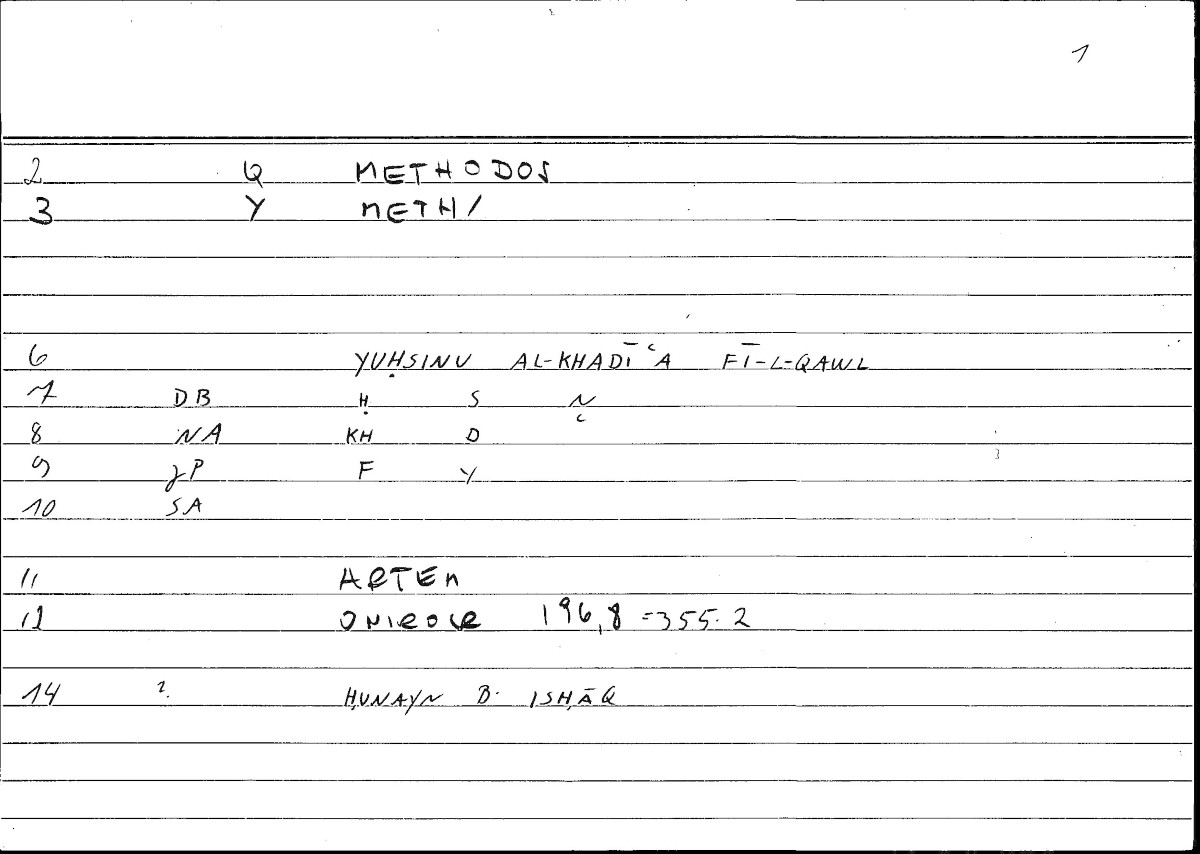 1
2 Q METHODOS
3 Y METH/
6 YUḤSINU AL-KHADĪʿA FĪ-L-QAWL
7 DB Ḥ S N
8 NA KH D ʿ
9 JP F Y
10 SA
11 ARTEM
12 ONIROCR 196,8=355.2
14 2. ḤUNAYN B. ISḤĀQ